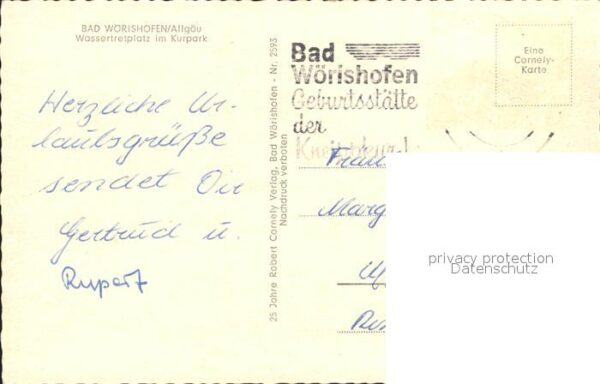 BAD WÖRISHOFEN/Allgäu
Wassertretplatz im Kurpark
Herzliche Ur-
laubsgrüße
sendet Dir
Gertrud u.
Rupert
25 Jahre Robert Cornely Verlag, Bad Wörishofen - Nr. 2593
Nachdruck verboten
Bad
Wörishofen
Geburtsstätte
der
Eine
Cornely-
Karte
Frau
Marg
privacy protection
Datenschutz